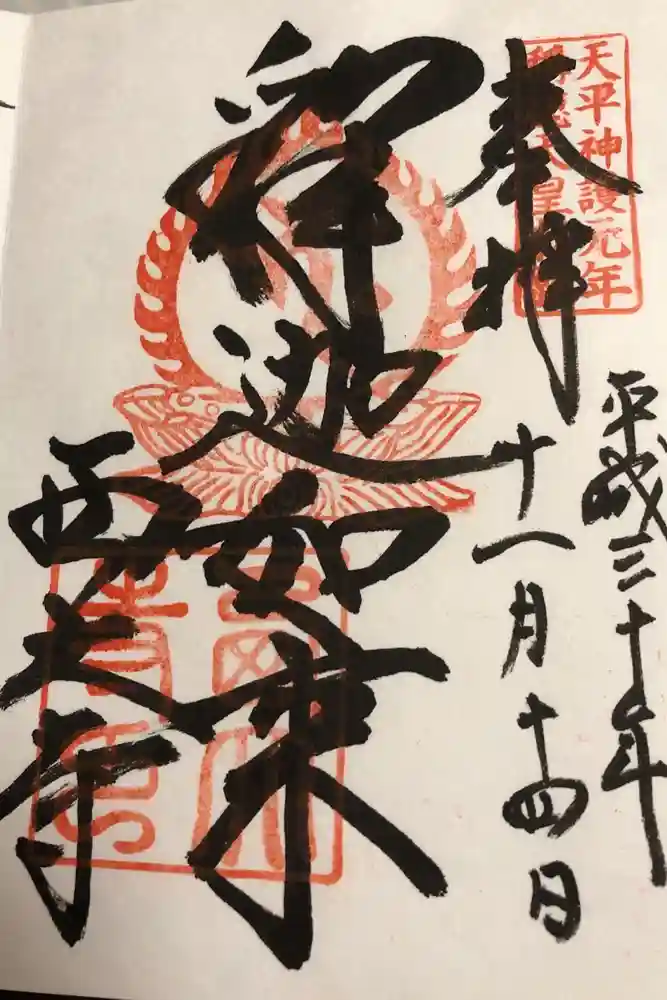 天平神護元年
稱德天皇
奉拝
平成三十年
十一月十四日
釈迦如来
西大寺